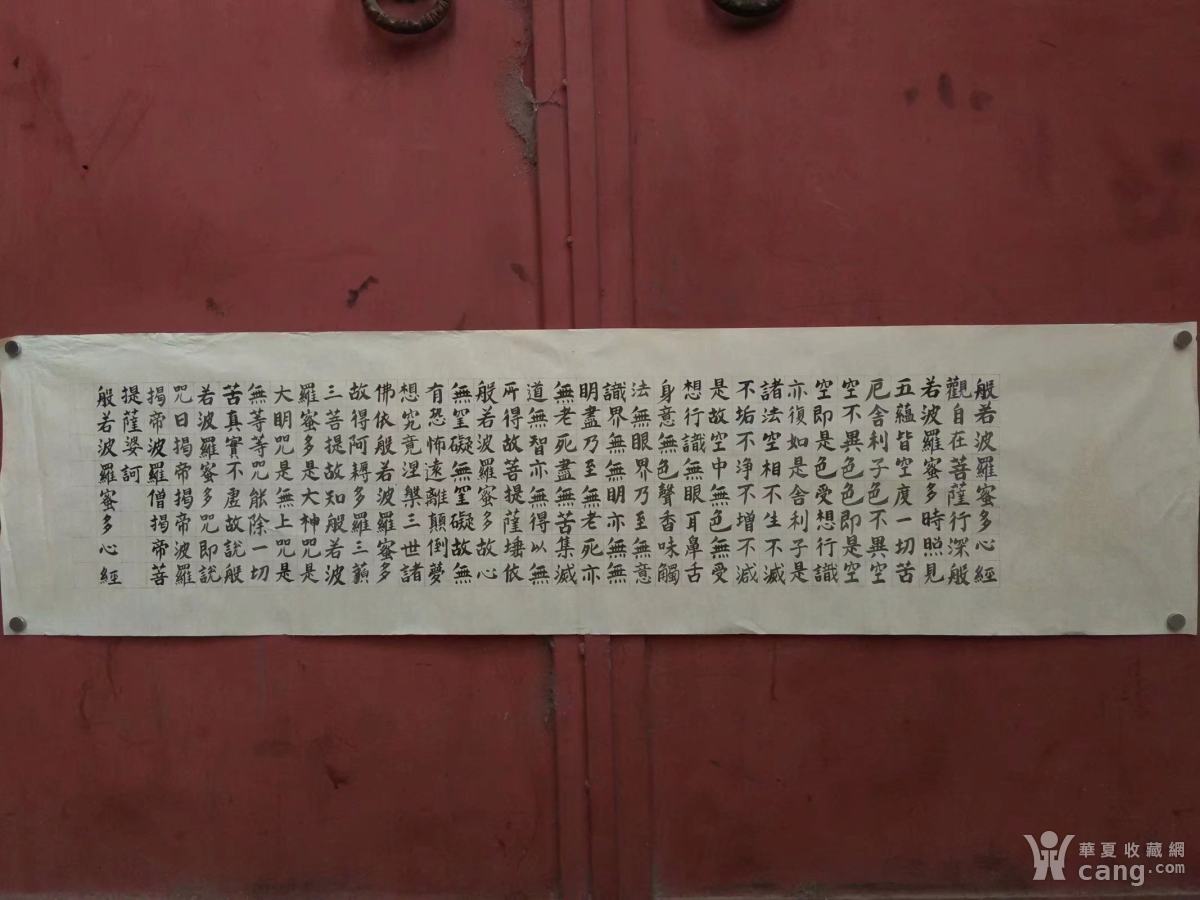 般若波羅蜜多心經
觀自在菩薩行深般
若波羅蜜多時照見
五蘊皆空度一切苦
厄舍利子色不異空
空不異色色即是空
空即是色受想行識
亦復如是舍利子是
諸法空相不生不滅
不垢不淨不增不減
是故空中無色無受
想行識無眼耳鼻舌
身意無色聲香味觸
法無眼界乃至無意
識界無無明亦無無
明盡乃至無老死亦
無老死盡無苦集滅
道無智亦無得以無
所得故菩提薩埵依
般若波羅蜜多故心
無罣礙無罣礙故無
有恐怖遠離顛倒夢
想究竟涅槃三世諸
佛依般若波羅蜜多
故得阿耨多羅三藐
三菩提故知般若波
羅蜜多是大神咒是
大明咒是無上咒是
無等等咒能除一切
苦真實不虛故說般
若波羅蜜多咒即說
咒曰揭帝揭帝波羅
揭帝波羅僧揭帝菩
提薩婆訶
般若波羅蜜多心經
華夏收藏網
cang.com